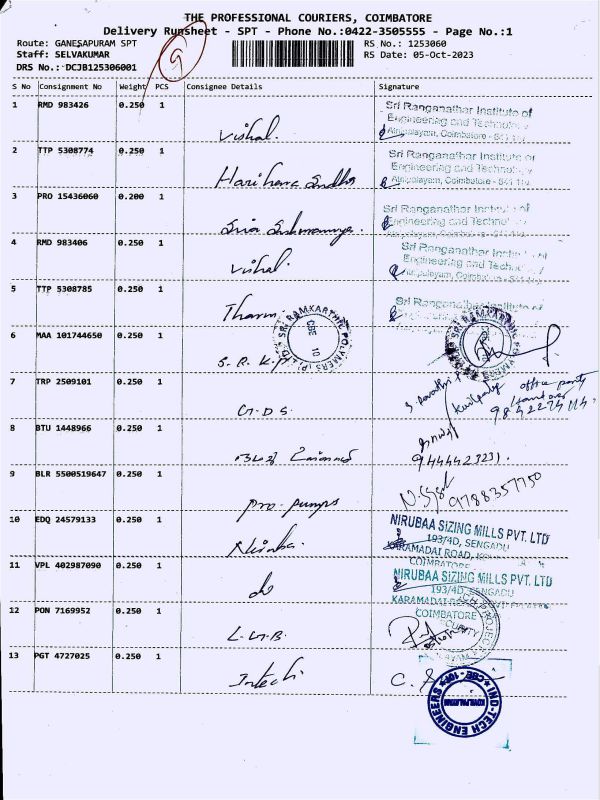 THE PROFESSIONAL COURIERS, COIMBATORE
Delivery Runsheet - SPT - Phone No.:0422-3505555 - Page No.:1
Route: GANESAPURAM SPT
RS No.: 1253060
Staff: SELVAKUMAR
RS Date: 05-Oct-2023
DRS No.:DCJB125306001
S No Consignment No Weight PCS Consignee Details Signature
1 RMD 983426 0.250 1 Vishal.
Sri Ranganathar Institute of
Engineering and Technology
Athipalayam, Coimbatore - 641 110
2 TTP 5308774 0.250 1 Hari hara Sudhs
Sri Ranganathar Institute of
Engineering and Technology
Athipalayam, Coimbatore - 641 110
3 PRO 15436060 0.200 1 Siva
Sri Ranganathar Institute of
Engineering and Technology
4 RMD 983406 0.250 1 Vishal.
Sri Ranganathar Institute
Engineering and Technology
Athipalayam, Coimbatore
5 TTP 5308785 0.250 1 Tharun
Sri Ranganathar Institute of
6 MAA 101744650 0.250 1 S. R. K. P
SRI RAMKARTHIC POLYMERS (P) LTD
CBE 10
7 TRP 2509101 0.250 1 G.D.S.
office party
98422 74114
8 BTU 1448966 0.250 1
9444423231.
9 BLR 5500519647 0.250 1 Pro. pumps
9788357750
10 EDQ 24579133 0.250 1 Niruba
NIRUBAA SIZING MILLS PVT. LTD
193/4D, SENGADU
KARAMADAI ROAD,
COIMBATORE
11 VPL 402987090 0.250 1 do
NIRUBAA SIZING MILLS PVT. LTD
193/4D, SENGADU
KARAMADAI
COIMBATORE
12 PON 7169952 0.250 1 L.G.B.
13 PGT 4727025 0.250 1 Intech
IND-TECH ENGINEERS
KOVILPALAYAM